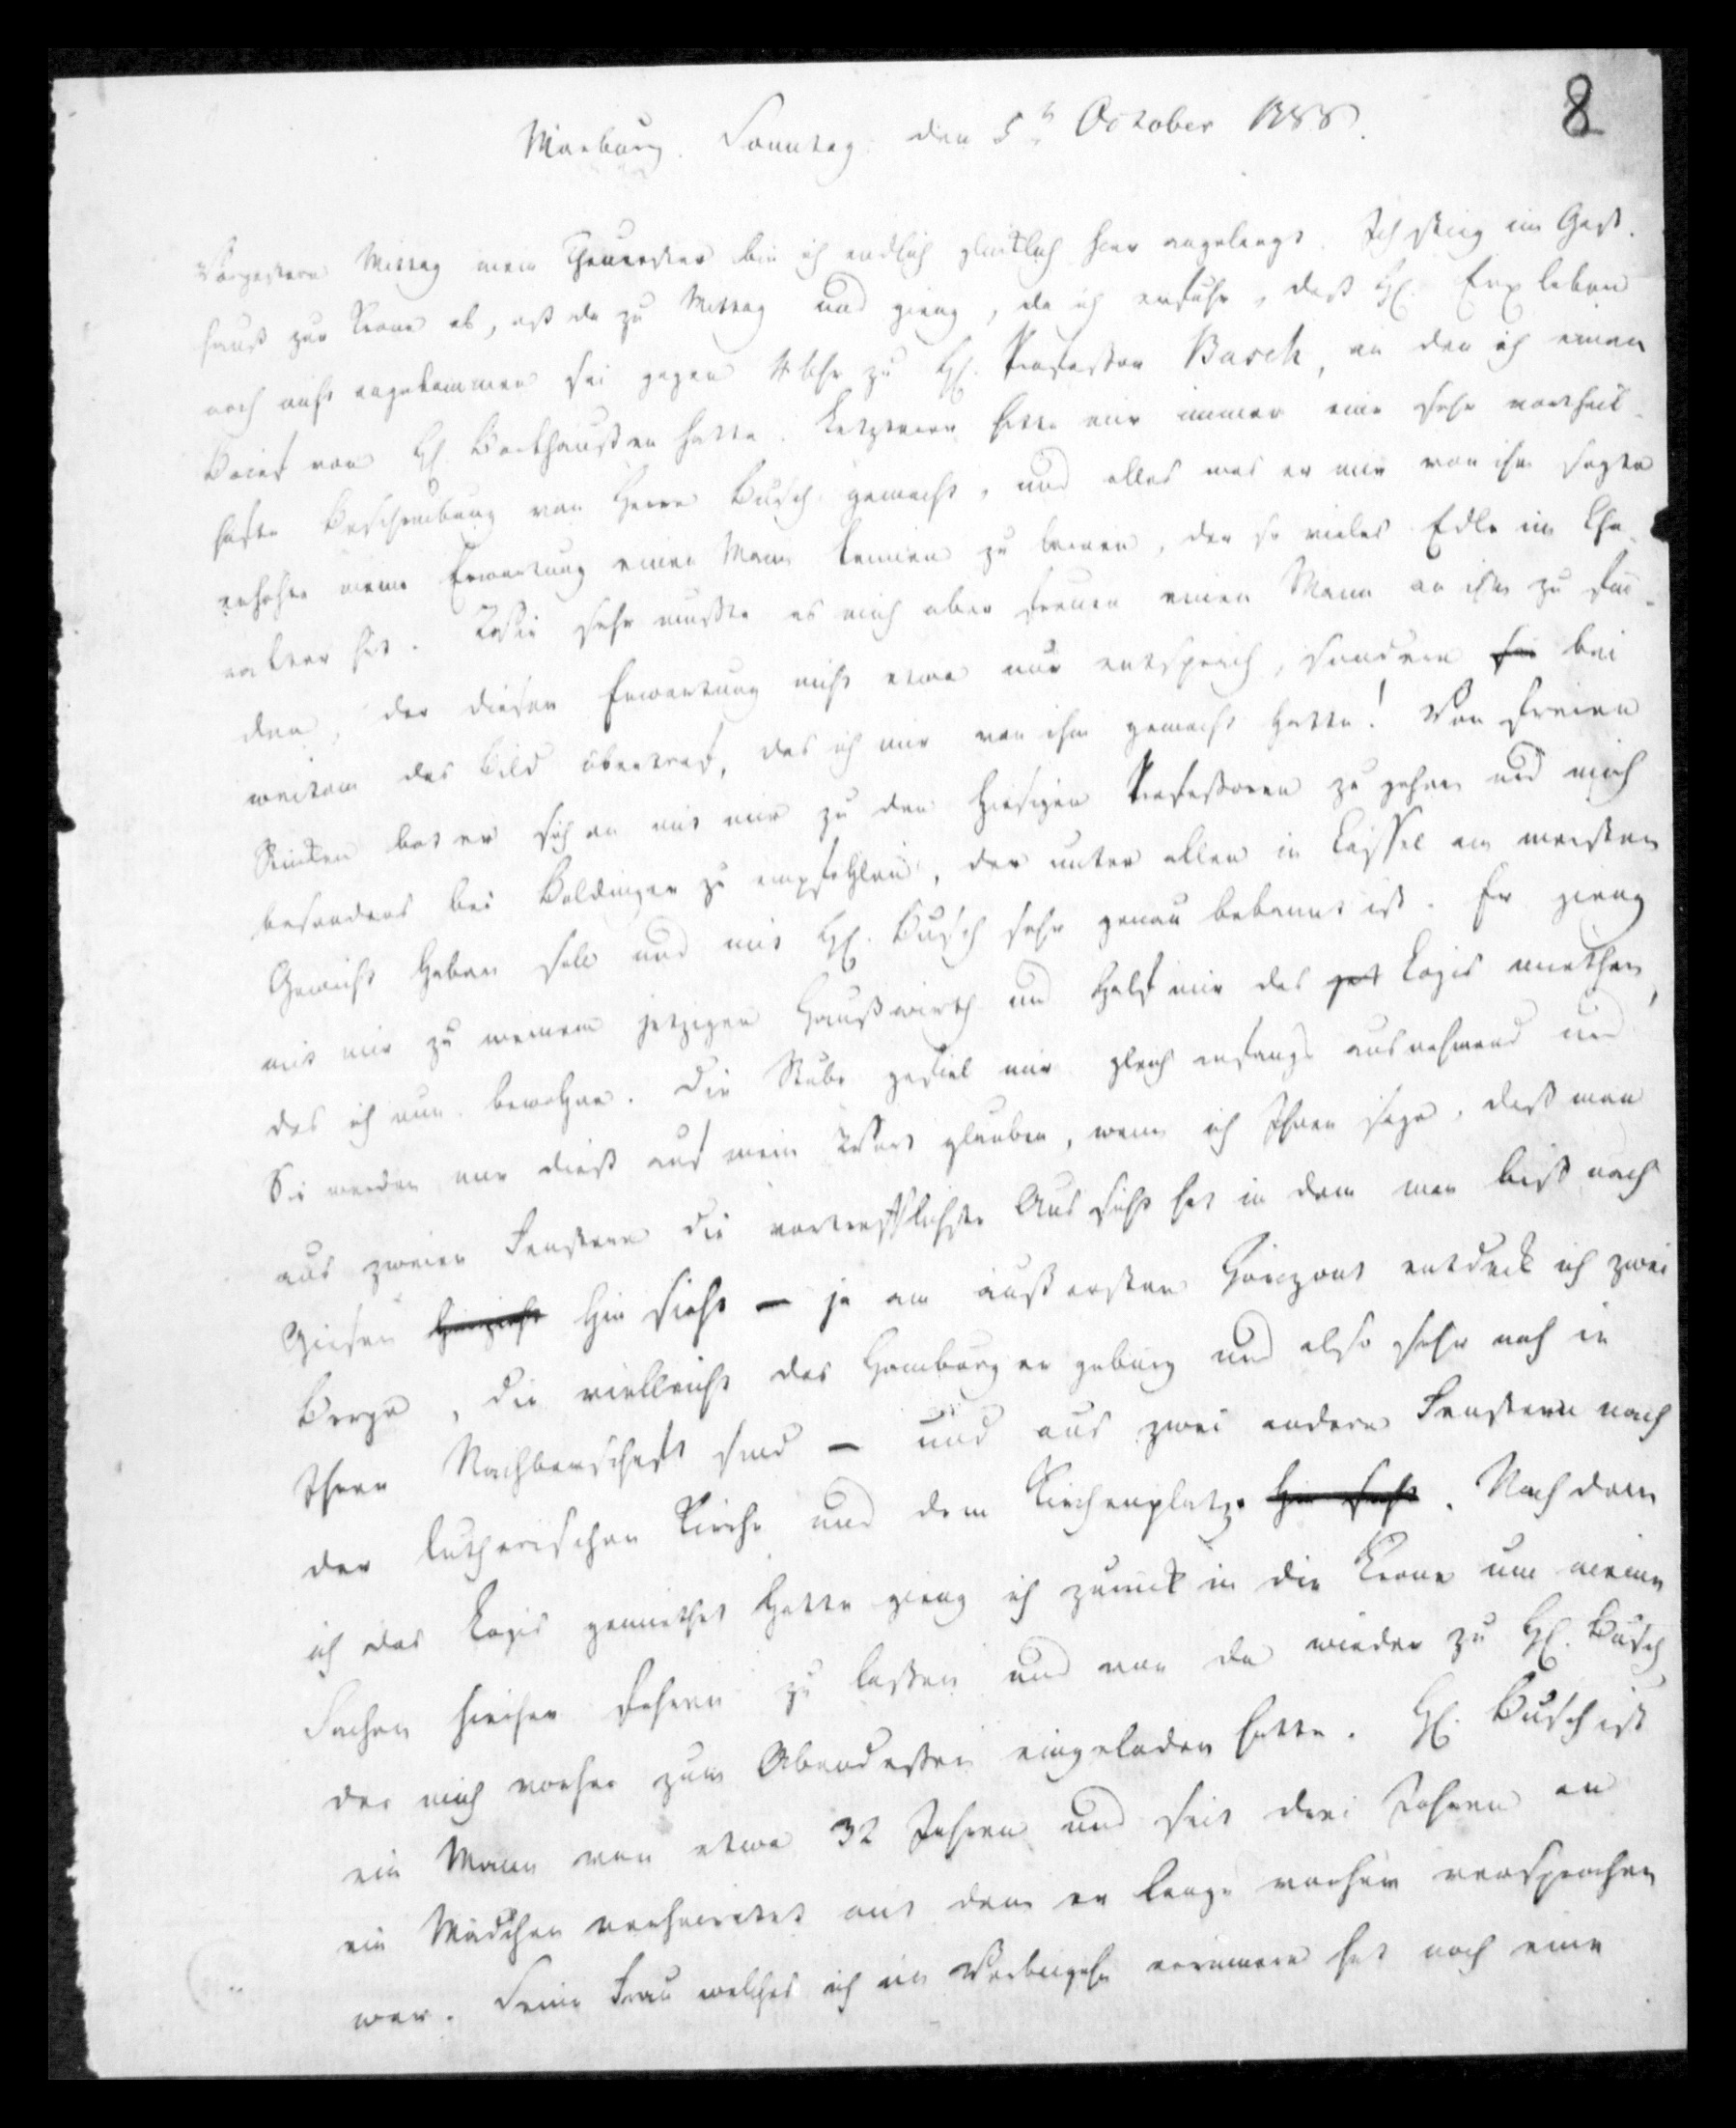 8
Marburg. Sonntag. den 5ten October 1788.
Vorgestern Mittag mein Theuerster bin ich endlich glüklich hier angelangt. Ich stieg im Gast-
hauß zur Krone ab, aß da zu Mittag und gieng, da ich erfuhr, daß H. Erxleben
noch nicht angekommen sei gegen 4 Uhr zu H. Professor Busch, an den ich einen
Brief von H. Borkhaußen hatte. Letzterer hatte mir immer eine sehr vortheil-
hafte Beschreibung von Herrn Busch gemacht, und alles was er mir von ihm sagte
erhohte meine Erwartung einen Mann kennen zu lernen, der so vieles Edle im Cha-
rakter hat. Wie sehr mußte es mich aber freuen einen Mann an ihm zu fin-
den, der dieser Erwartung nicht etwa nur entsprach, sondern sie bei
weitem das Bild übertraf, das ich mir von ihm gemacht hatte! Von freien
Stücken bot er sich an mit mir zu den hiesigen Professoren zu gehen und mich
besonders bei Baldinger zu empfehlen, der unter allen in Cassel am meisten
Gewicht haben soll und mit H. Busch sehr genau bekannt ist. Er gieng
mit mir zu meinem jetzigen Haußwirth und half mir das Logis miethen,
das ich nun bewohne. Die Stube gefiel mir gleich anfangs ausnehmend und
Sie werden mir dieß auf mein Wort glauben, wenn ich Ihnen sage, daß man
aus zweien Fenstern die vortrefflichste Aussicht hat in dem man biß nach
Giesen hin sieht — ja am äußersten Horizont entdeck ich zwei
Berge, die vielleicht das Homburger gebürg und also sehr nah in
Ihrer Nachbarschaft sind — und aus zwei andern Fenstern nach
der lutherischen Kirche und dem Kirchenplatze hin sieht. Nach dem
ich das Logis gemiethet hatte gieng ich zurück in die Krone um meine
Sachen hierher fahren zu laßen und von da wieder zu H. Busch,
der mich vorher zum Abendeßen eingeladen hatte. H. Busch ist
ein Mann von etwa 32 Jahren und seit drei Jahren an
ein Mädchen verheiratet mit dem er lange vorher versprochen
war. Seine Frau welches ich im Vorbeigehn erinnere hat noch eine